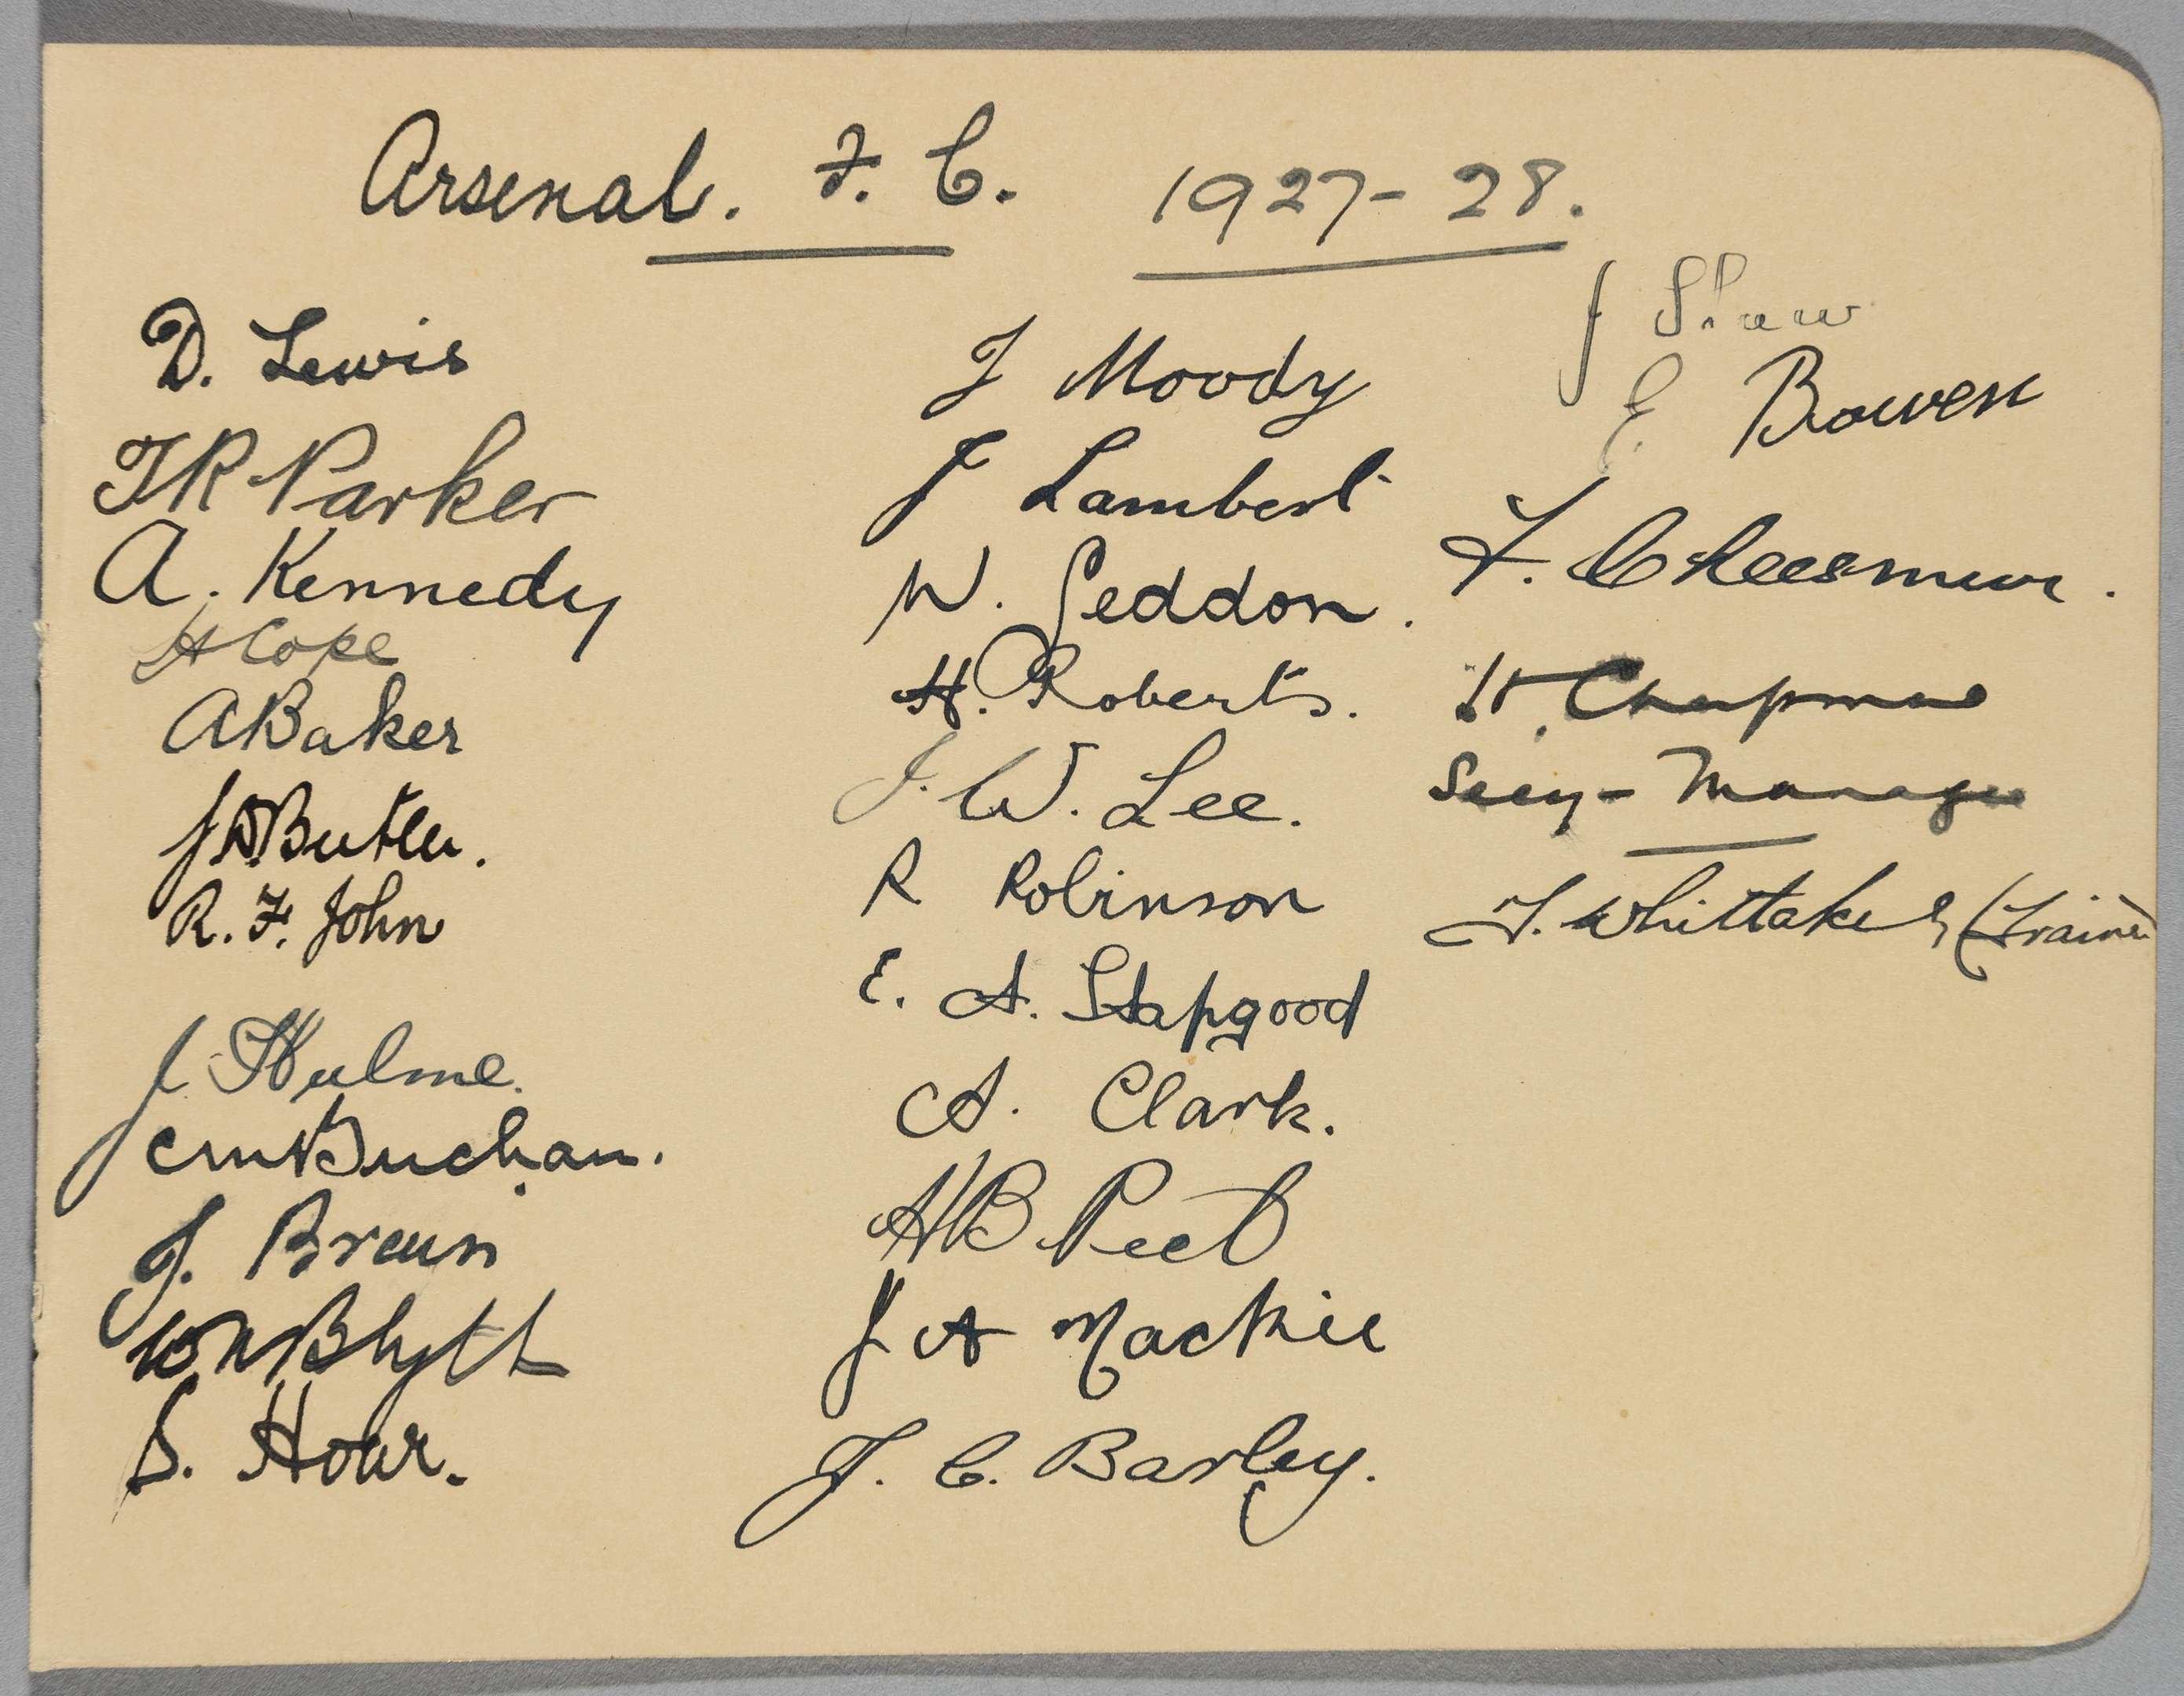 Arsenal. F. C. 1927-28.
D. Lewis
TR Parker
A. Kennedy
H Cope
A Baker
J D Butler.
R. F. John
J Hulme.
C M Buchan.
J. Brain
W N Blyth
S. Hoar.
J Moody
J Lambert
W. Seddon.
H. Roberts.
J. W. Lee.
R Robinson
E. A. Hapgood
A. Clark.
H B Peel
J A Mackie
J. C. Barley.
J Shaw
E. Bowen
F. Cheesmur.
H. Chapman
Secy- Manager
T. Whittaker (Trainer